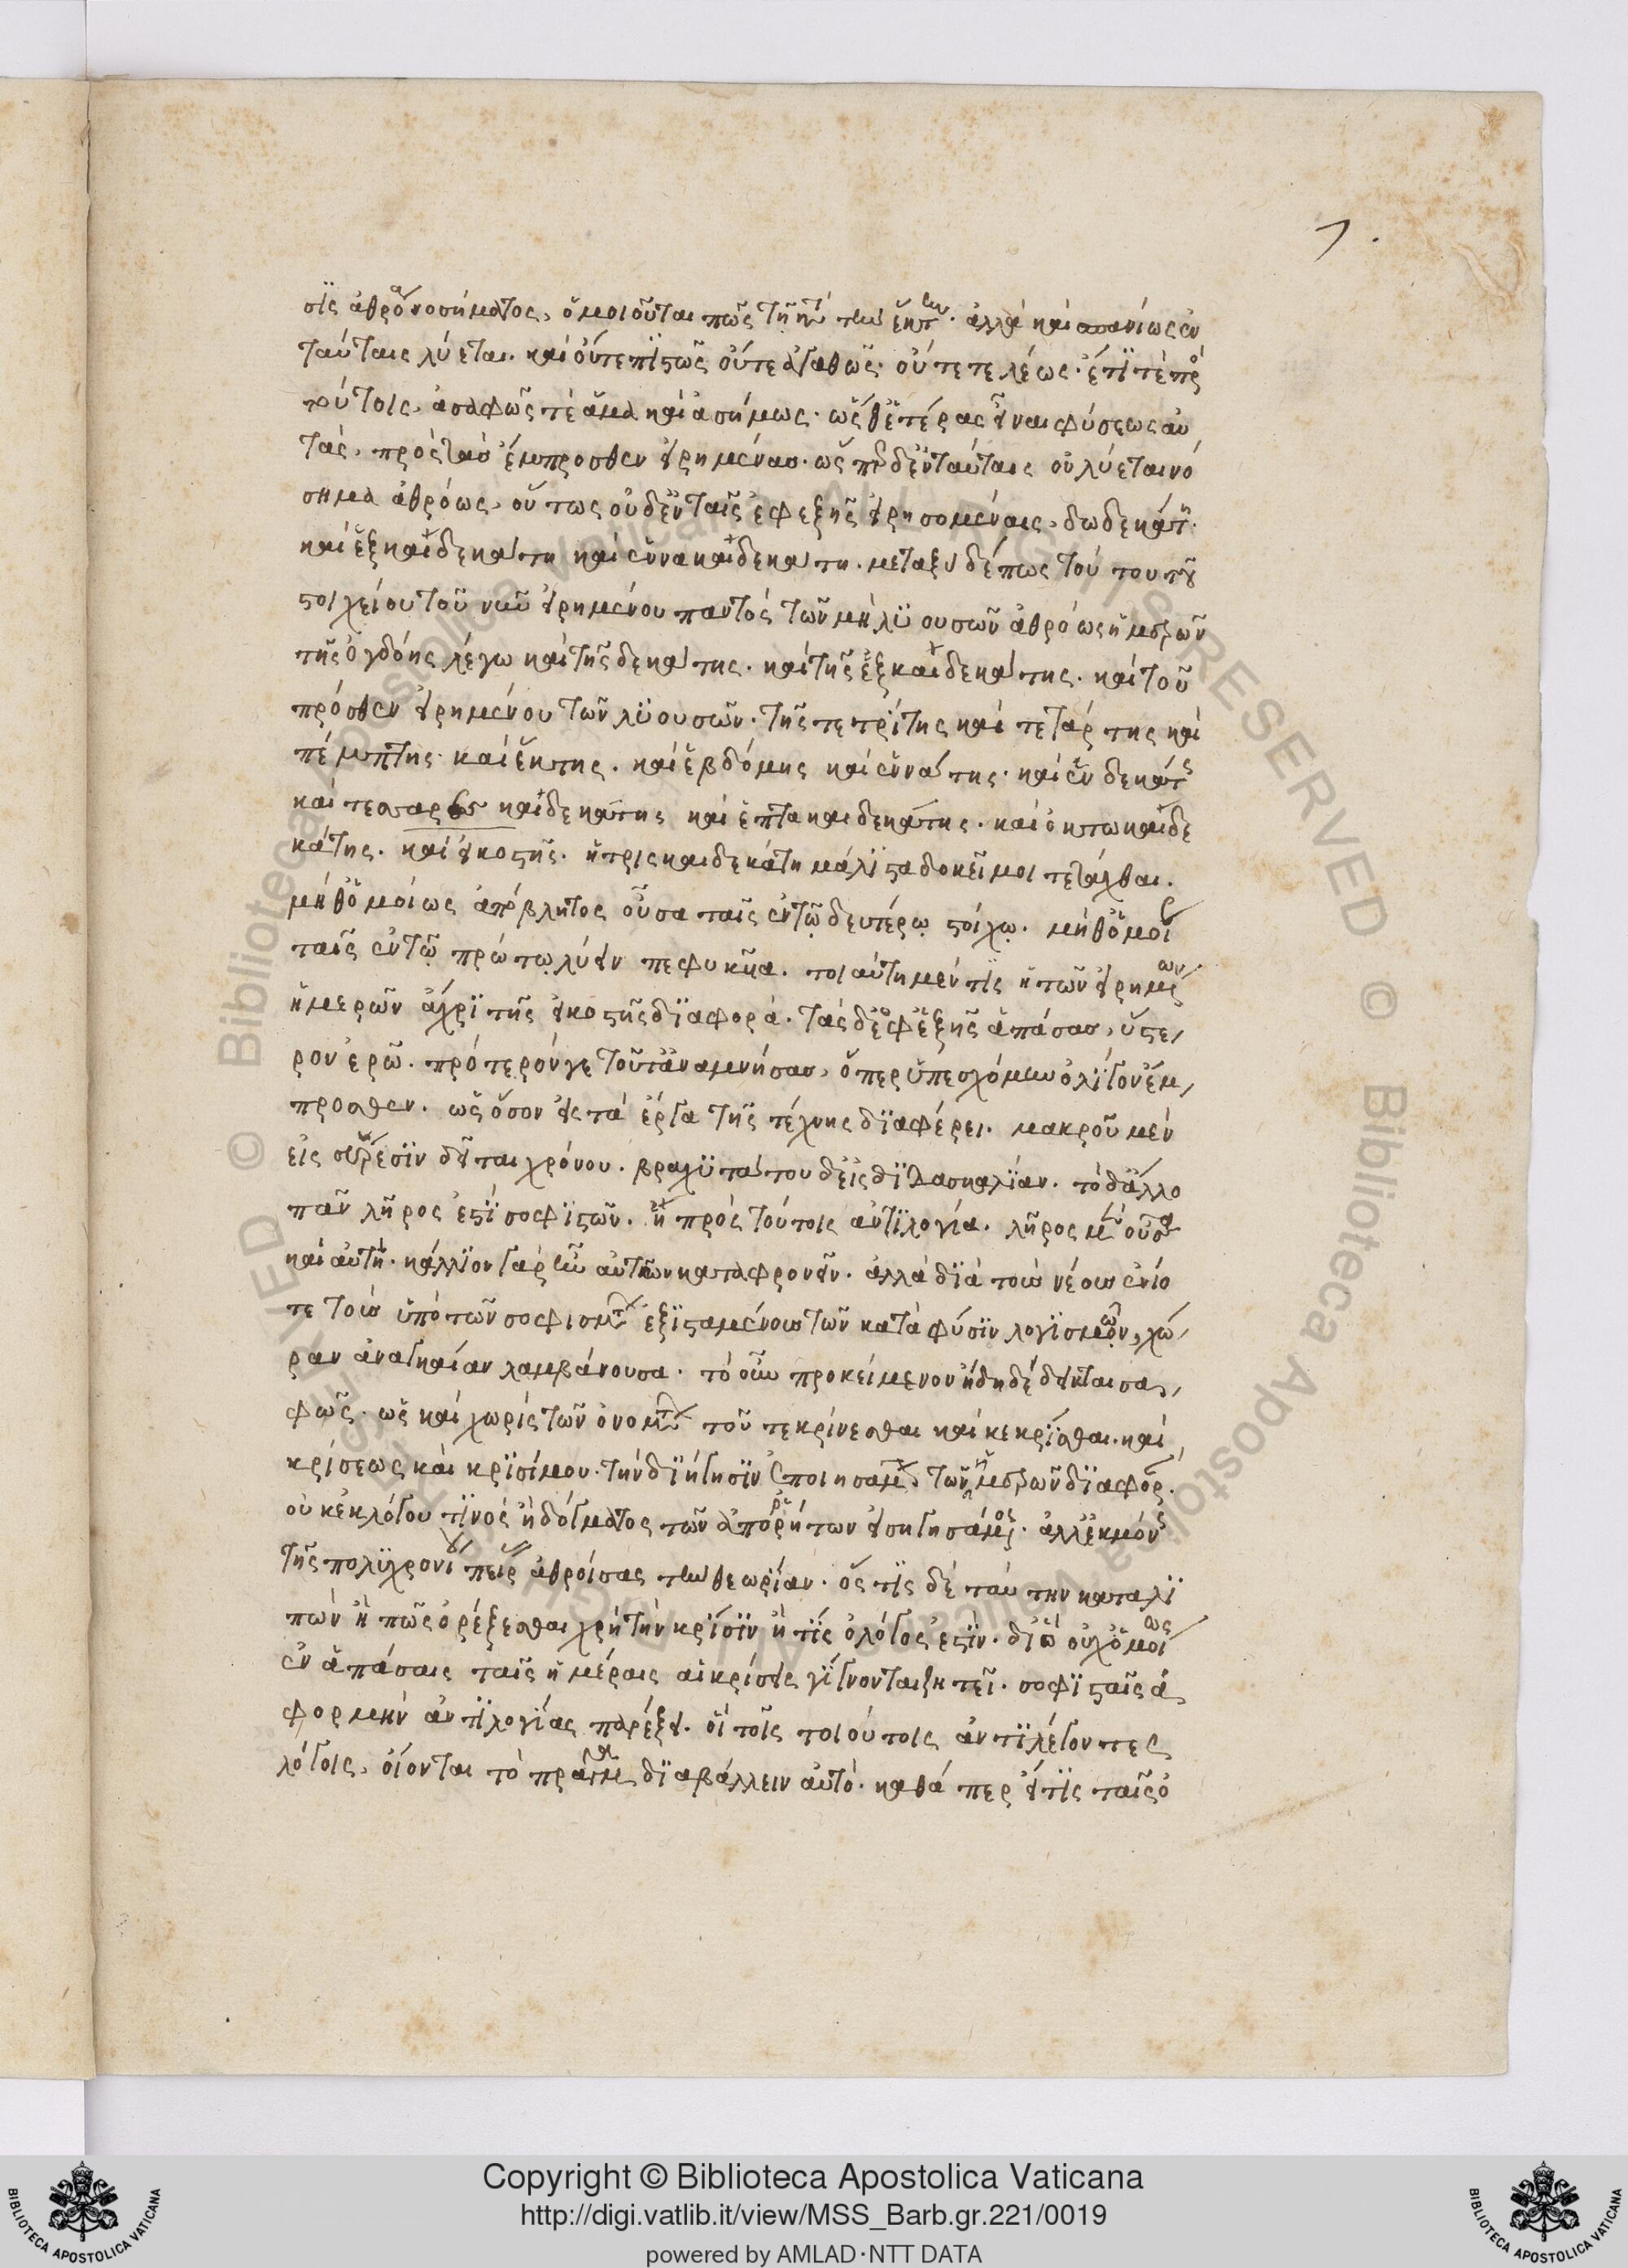 7.
σϊς ἀθρόα νοσήματος, ὁμοιοῦται πως τῇ κατὰ τὴν ἕκτην. ἀλλὰ καὶ σπανίως ἐν
ταύταις λύεται. καὶ οὔτε πϊστῶς οὔτε ἀγαθῶς. οὔτε τελέως. ἔτϊ τὲ πρὸς
τούτοις, ἀσαφῶς τὲ ἅμα καὶ ἀσήμως. ὡς θετέρας εἶναι φύσεως αὐ
τὰς, πρὸς τὰς ἔμπροσθεν εἰρημένας. ὡς περ δ' ἐν ταύταις οὐ λύεται νό
σημα ἀθρόως, οὕτως οὐδ' ἐν ταῖς ἐφεξῆς εἰρησομέναις, δωδεκάτη.
καὶ ἑξκαιδεκάτη καὶ ἐννακαιδεκάτη. μεταξὺ δέ πως τούτου τοῦ
στοιχείου τοῦ νῦν εἰρημένου παντὸς τῶν μὴ λϋουσῶν ἀθρόως ἡμερῶν
τῆς ὀγδόης λέγω καὶ τῆς δεκάτης. καὶ τῆς ἑξκαιδεκάτης. καὶ τοῦ
πρόσθεν εἰρημένου τῶν λϋουσῶν. τῆς τε τρίτης καὶ τετάρτης καὶ
πέμπτης καὶ ἕκτης. καὶ ἑβδόμης καὶ ἐννάτης. καὶ ἑνδεκάτης
καὶ τεσσαρεσ καιδεκάτης καὶ ἑπτακαιδεκάτης. καὶ ὀκτωκαιδε
κάτης. καὶ εἰκοστῆς. ἡ τρισκαιδεκάτη μάλϊστα δοκεῖ μοι τετάχθαι.
μήθ' ὁμοίως ἀπόβλητος οὖσα ταῖς ἐν τῷ δευτέρῳ στοίχῳ. μήθ' ὁμοί
ταῖς ἐν τῷ πρώτῳ λύειν πεφυκῖα. τοιαύτη μέν τϊς ἡ τῶν εἰρημένων
ἡμερῶν ἄχρϊ τῆς εἰκοστῆς δϊαφορά. τὰς δ' ἐφεξῆς ἁπάσας, ὕστε
ρον ἐρῶ. πρότερόν γε τοῦτ' ἀναμνήσας, ὅπερ ὑπεσχόμην ὀλϊγον ἔμ
προσθεν. ὡς ὅσον εἰς τὰ ἔργα τῆς τέχνης δϊαφέρει. μακροῦ μὲν
εἰς εὕρεσϊν δεῖται χρόνου. βραχϋτάτου δ' εἰς δϊδασκαλϊαν. τὸ δ' ἄλλο
πᾶν λῆρος ἐστϊ σοφϊστῶν. ἡ πρὸς τούτοις ἀντϊλογία. λῆρος μὲν οὖσα
καὶ αὐτή. κάλλϊον γὰρ ἦν αὐτῶν καταφρονεῖν. ἀλλὰ δϊὰ τοὺς νέους ἐνίο
τε τοὺς ὑπὸ τῶν σοφισμάτων ἐξϊσταμένους τῶν κατὰ φύσϊν λογϊσμῶν, χώ
ραν ἀναγκαίαν λαμβάνουσα. τὸ οὖν προκείμενον ἤδη δέδεικται σα
φῶς. ὡς καὶ χωρὶς τῶν ὀνομάτων τοῦ τε κρίνεσθαι καὶ κεκρϊσθαι. καὶ
κρίσεως καὶ κρϊσίμου. τὴν δϊήγησϊν ἐποιησάμην τῶν ἡμερῶν δϊαφορᾶς.
οὐκ ἐκ λόγου τϊνὸς ἢ δόγματος τῶν ἀπορρήτων εἰσηγησάμενος. ἀλλ' ἐκ μόνης
τῆς πολϋχρονίου πείρας ἀθροίσας τὴν θεωρίαν. ὅς τϊς δὲ ταύτην καταλϊ
πὼν ἢ πῶς ὀρέξεσθαι χρὴ τὴν κρϊσϊν ἢ τϊς ὁ λόγος ἐστϊν. δϊ' ὃ οὐχ ὁμοίως
ἐν ἁπάσαις ταῖς ἡμέραις αἱ κρίσεις γϊγνονται ζητεῖ. σοφϊσταῖς ἀ
φορμὴν ἀντϊλογίας παρέξει. οἳ τοῖς τοιούτοις ἀντϊλέγοντες
λόγοις, οἴονται τὸ πρᾶγμα δϊαβάλλειν αὐτό. καθάπερ εἴ τϊς ταῖς ὁ
Copyright © Biblioteca Apostolica Vaticana
http://digi.vatlib.it/view/MSS_Barb.gr.221/0019
powered by AMLAD·NTT DATA